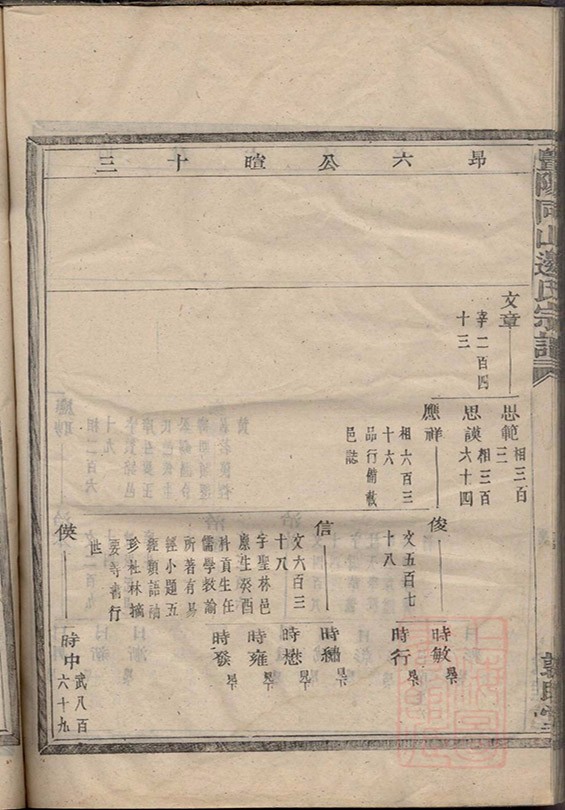 暨陽同山邊氏宗譜
昻六公暄十三
文章
宰一百四
十三
思範
相三百
三
思謨
相三百
六十四
應祥
相六百三
十六
品行備載
邑誌
俊
文五百七
十八
時敏
時行
信
文六百三
十八
字聖林邑
廪生癸酉
朴貢生任
儒學教諭
所著有易
經小題五
經類語袖
珍杜林摘
要等書行
世
時繡
時懋
時雍
時發
俟
時中
武八百
六十九
敦